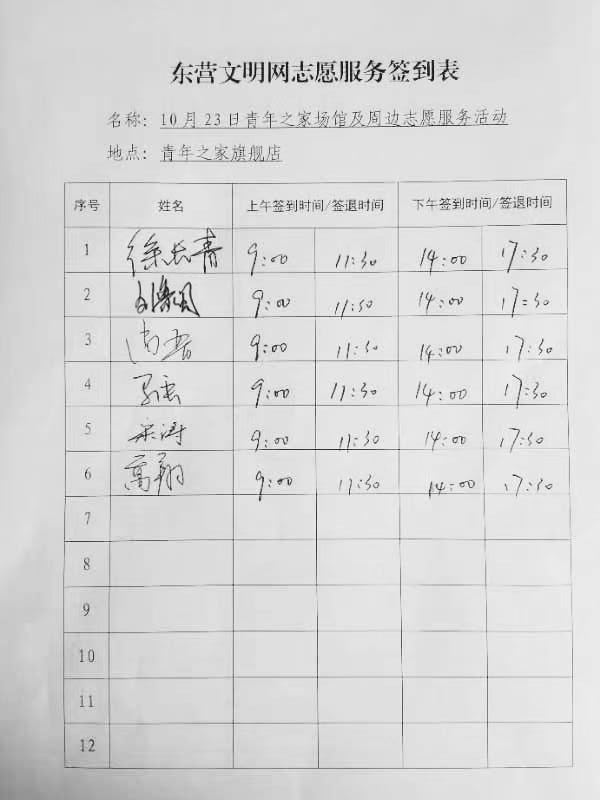 东营文明网志愿服务签到表
名称：10月23日青年之家场馆及周边志愿服务活动
地点：青年之家旗舰店
序号 姓名 上午签到时间/签退时间 下午签到时间/签退时间
1 徐长青 9:00 11:30 14:00 17:30
2 9:00 11:30 14:00 17:30
3 9:00 11:30 14:00 17:30
4 9:00 11:30 14:00 17:30
5 宋涛 9:00 11:30 14:00 17:30
6 高翔 9:00 11:30 14:00 17:30
7
8
9
10
11
12